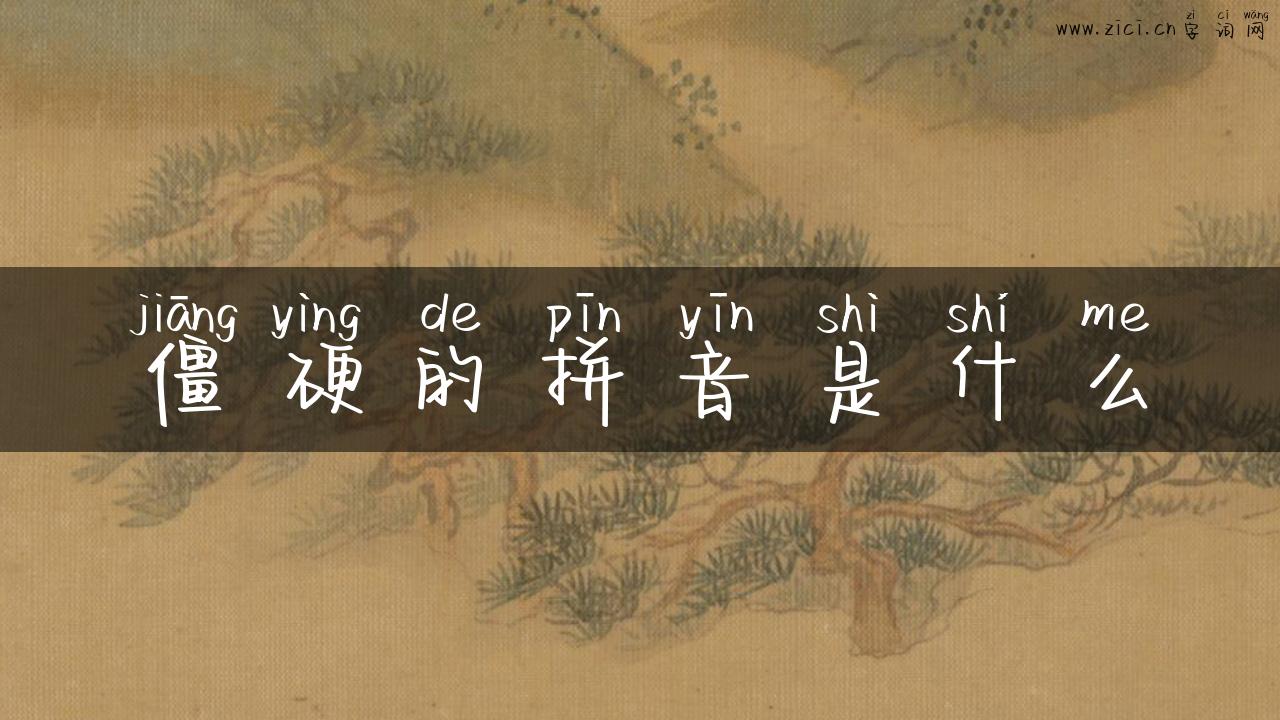 zì cí wǎng
www.zici.cn 字词网
jiāng yìng de pīn yīn shì shí me
僵硬的拼音是什么